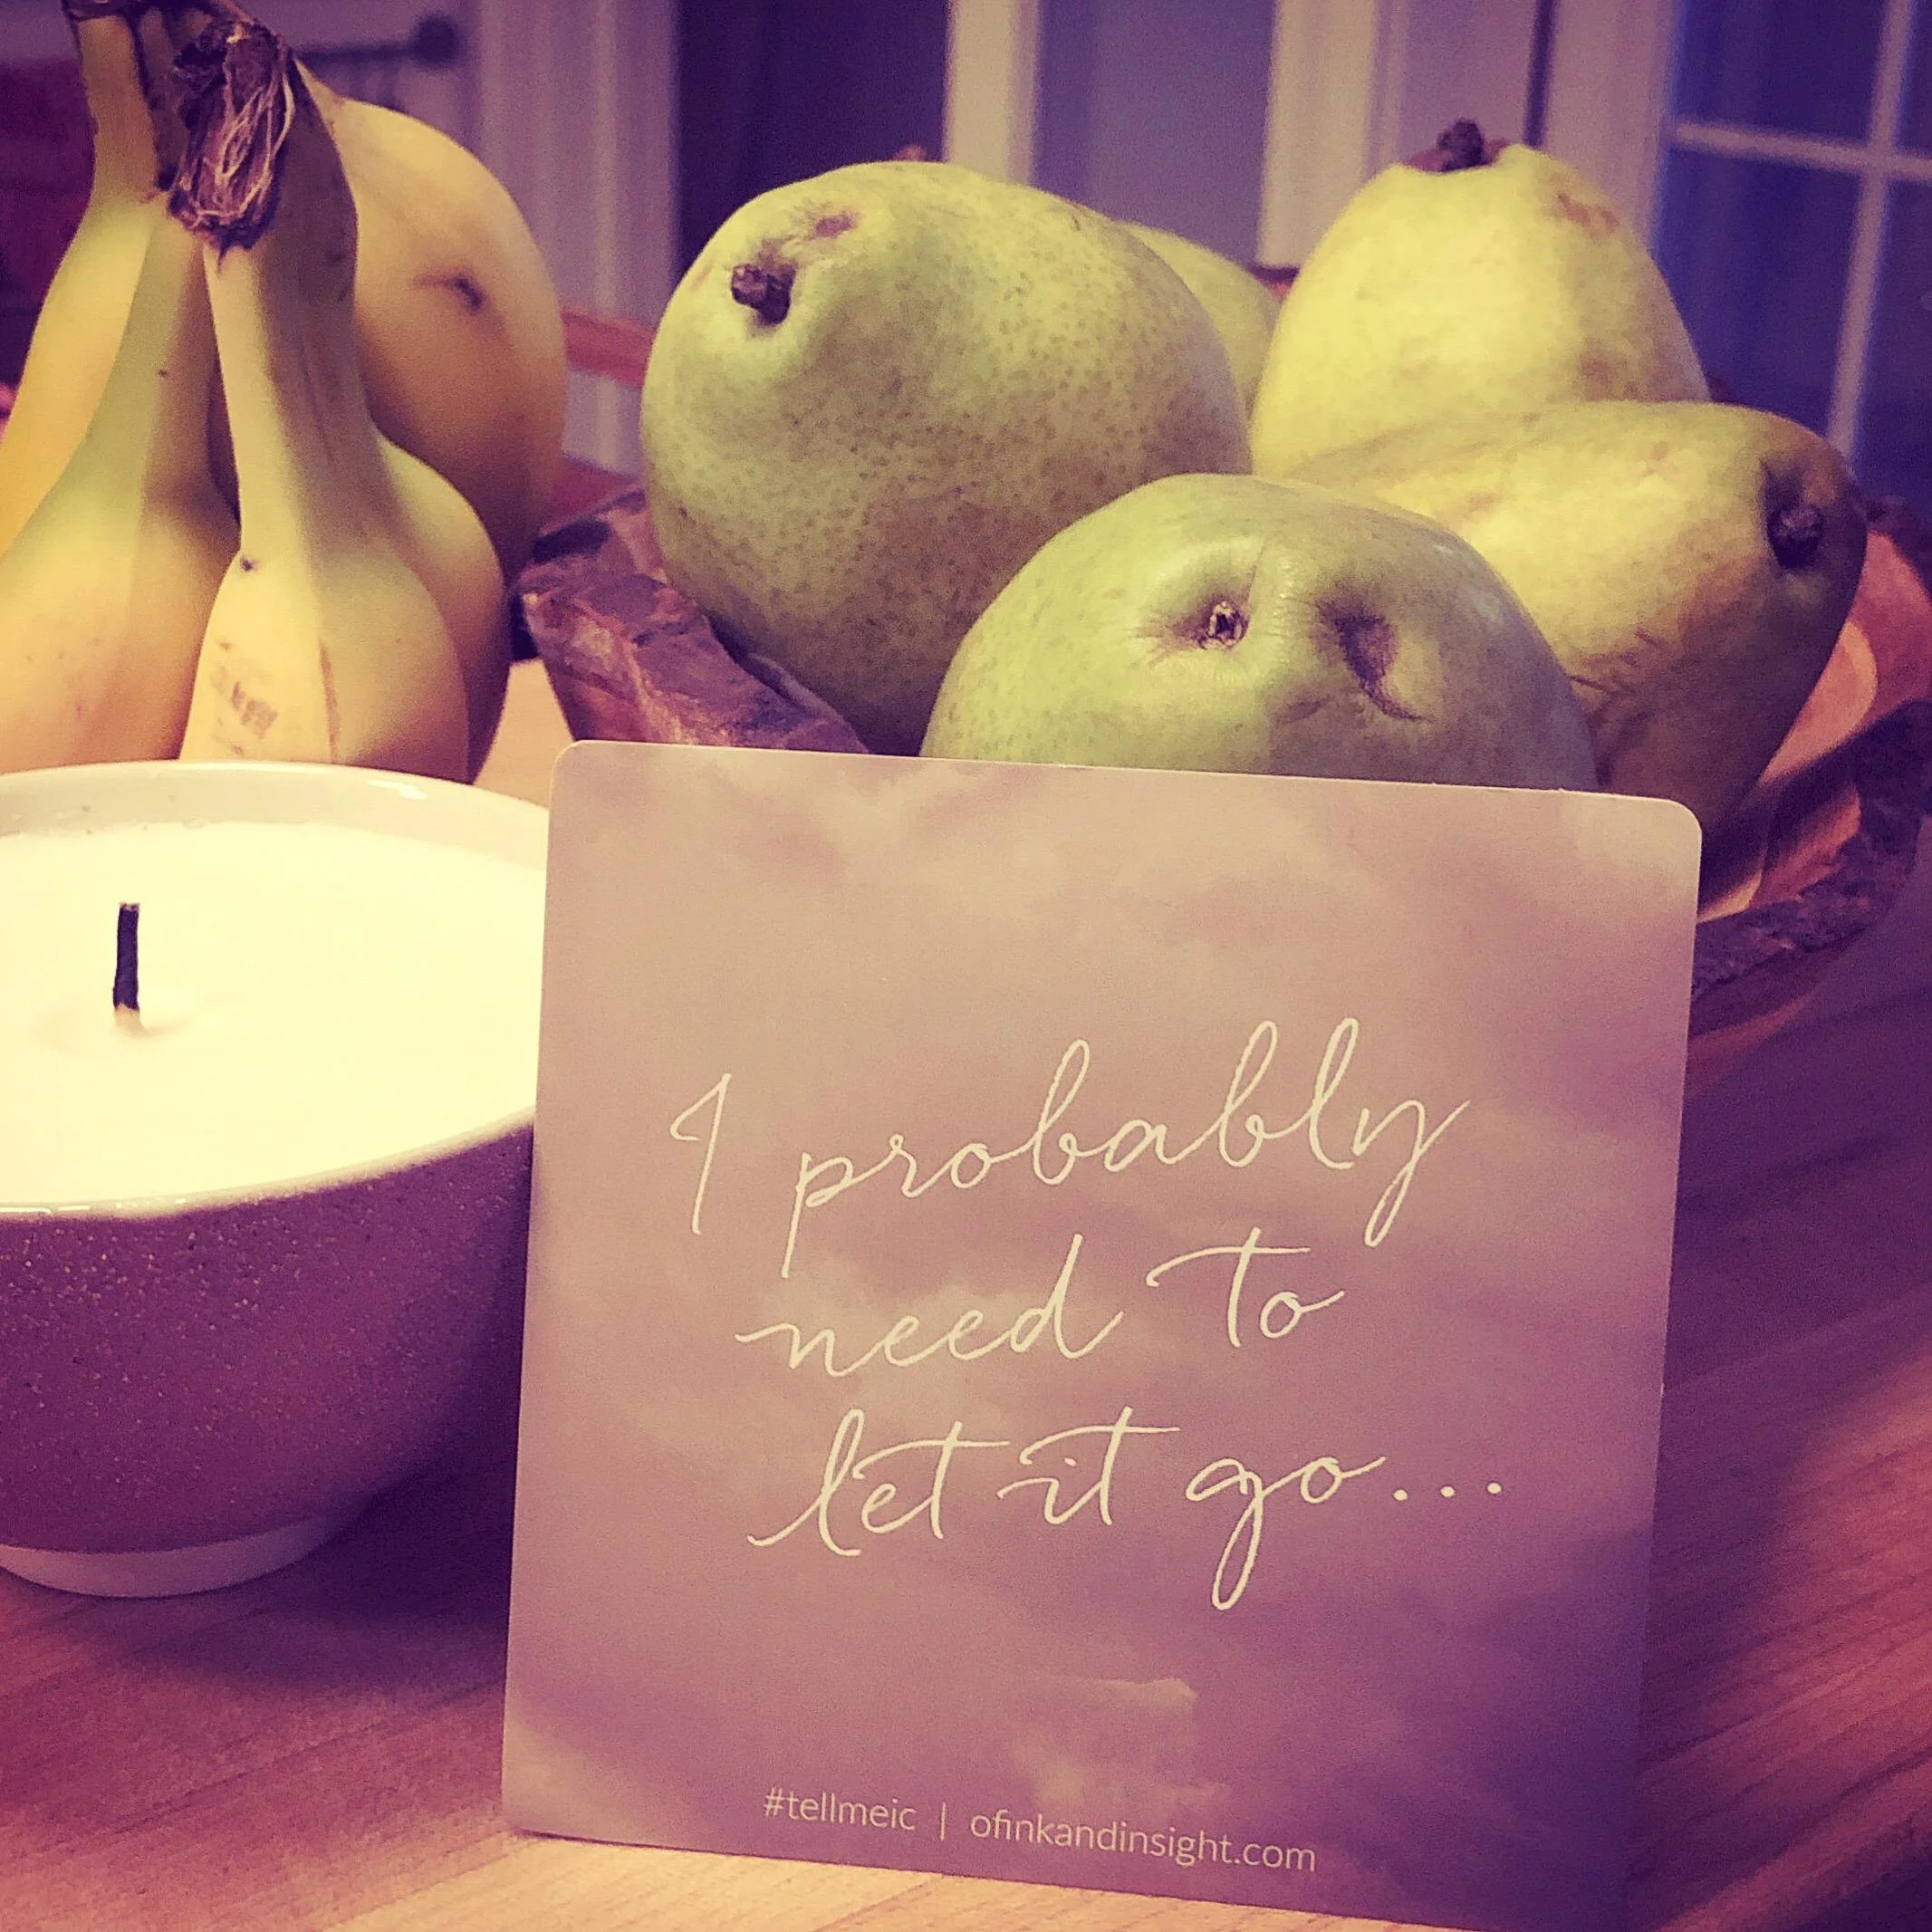 I probably
need to
let it go...
#tellmeic | ofinkandinsight.com